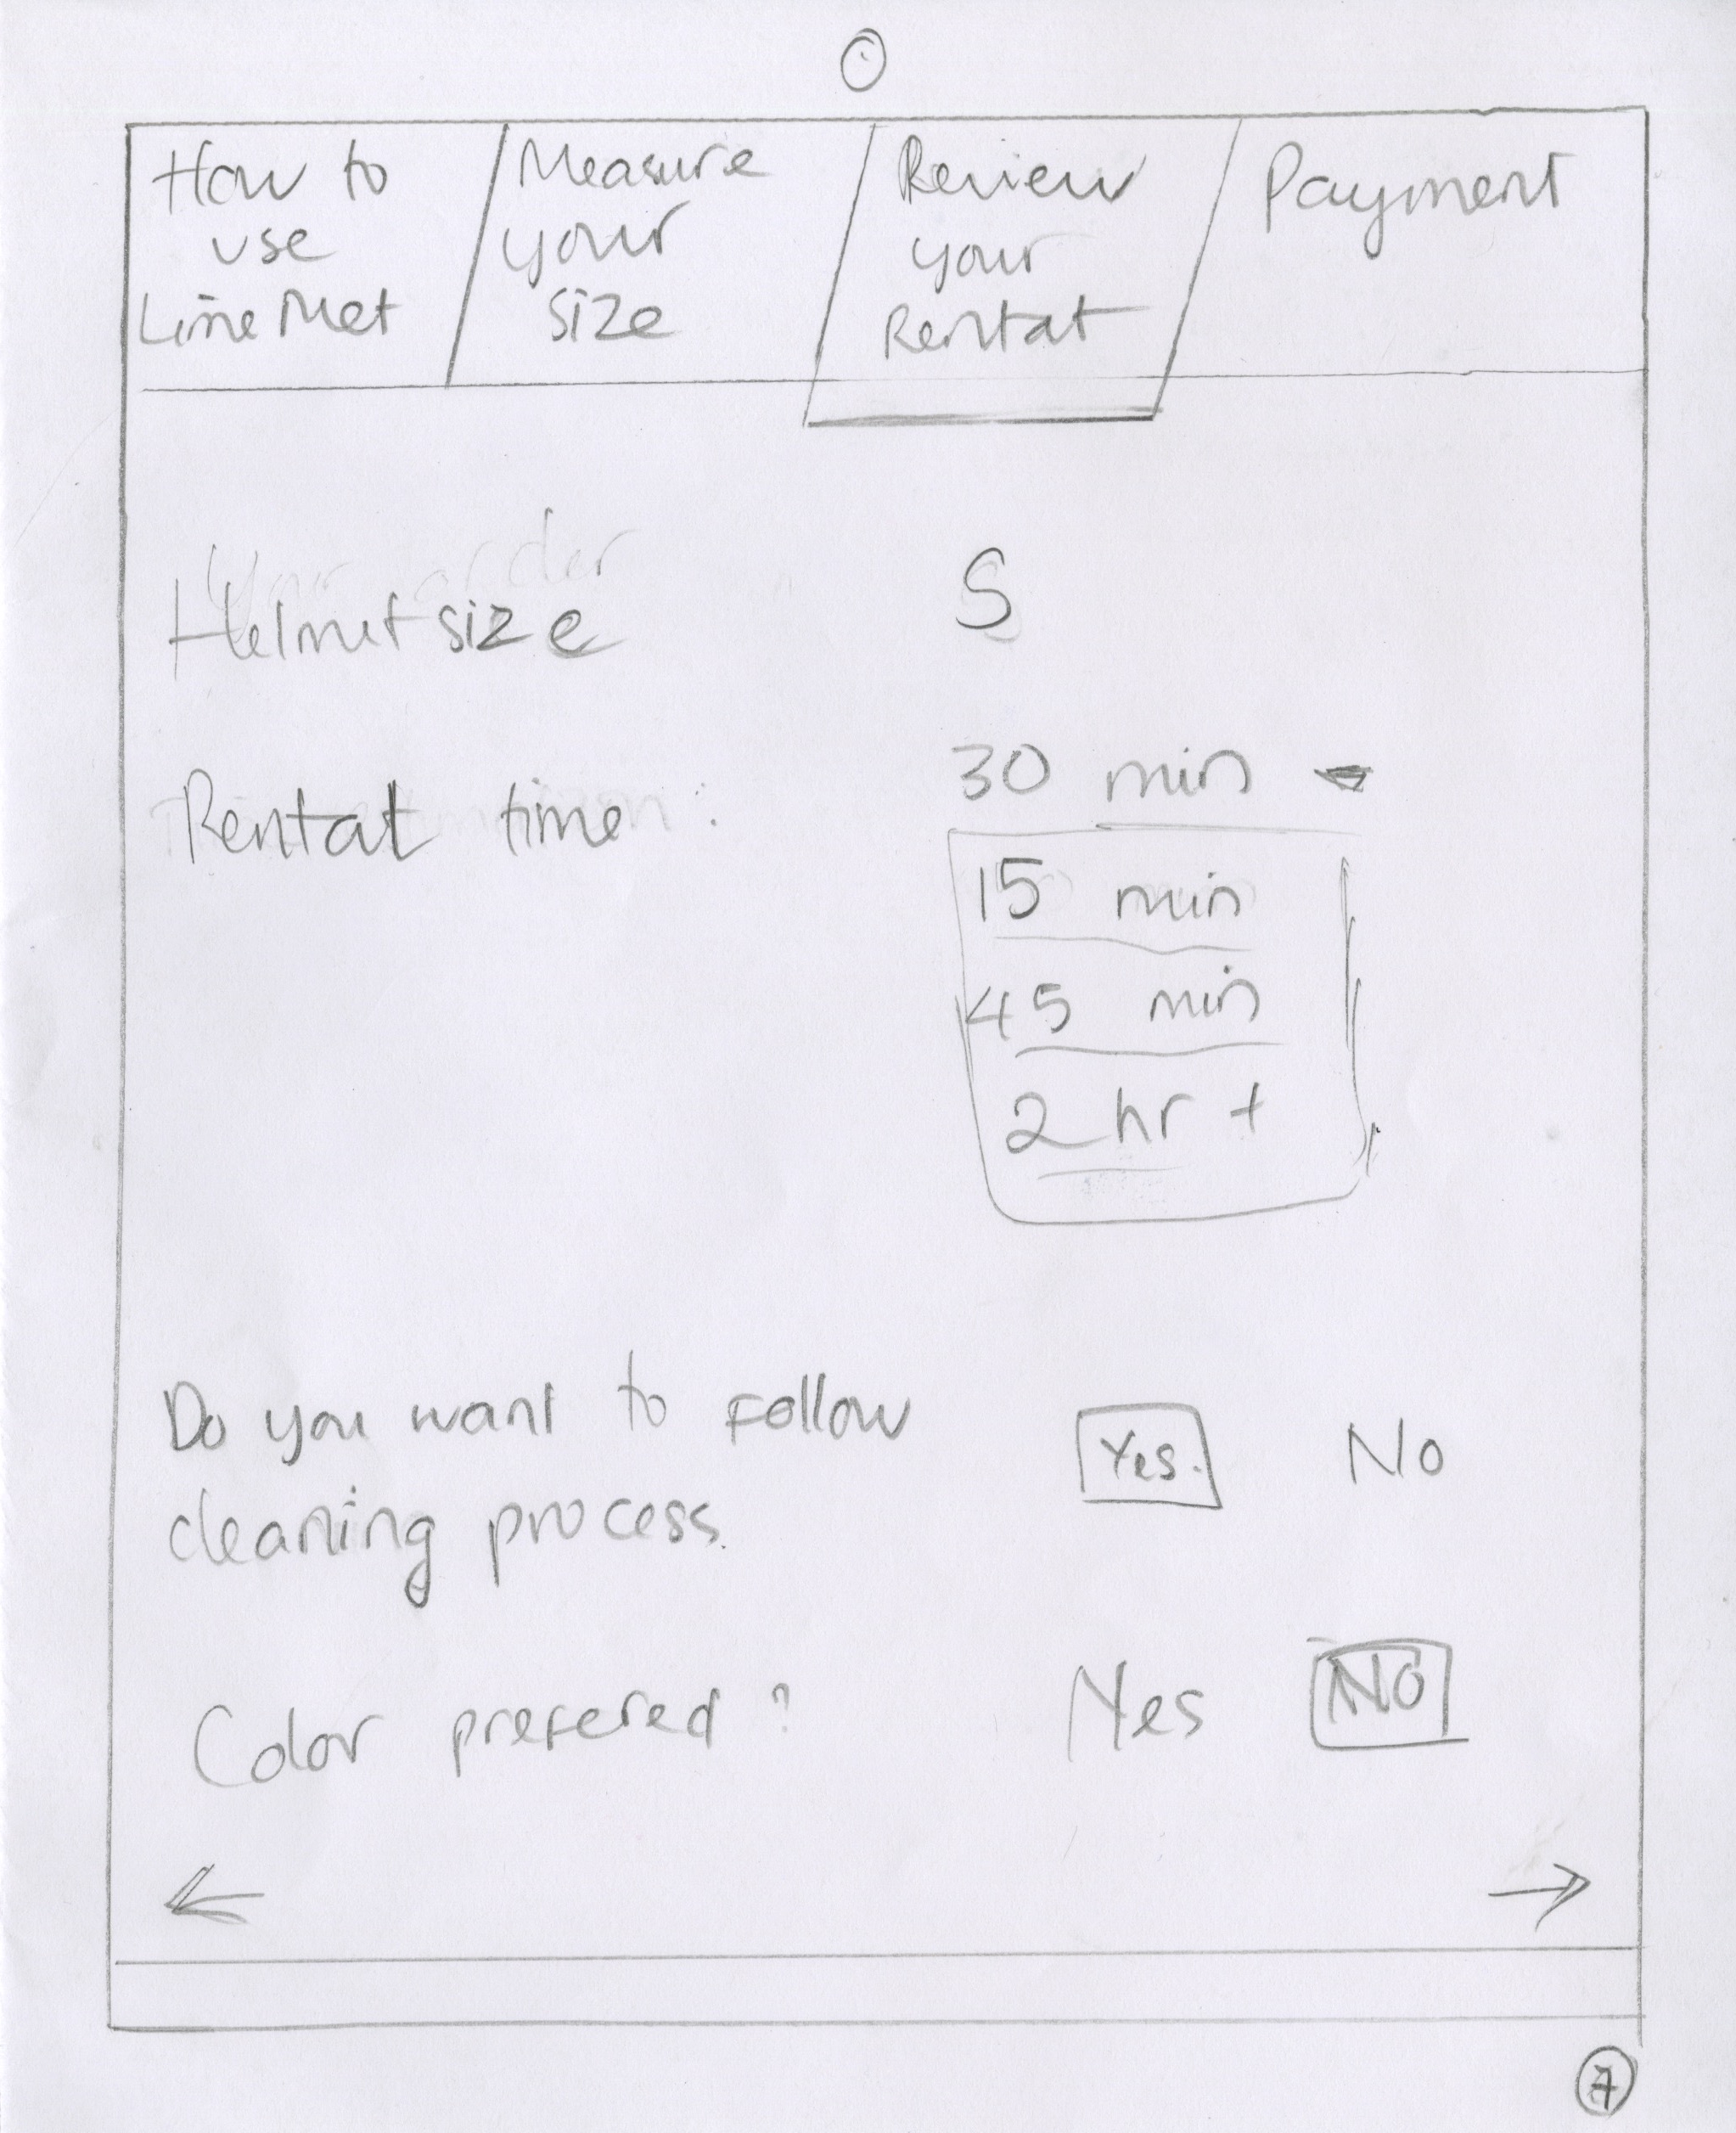 How to
use
LimeMet
Measure
your
size
Review
your
Rental
Payment
Your order
Helmet size
S
Rental time :
30 min
15 min
45 min
2 hr +
Do you want to follow
cleaning process.
Yes.
No
Color prefered ?
Yes
No
7